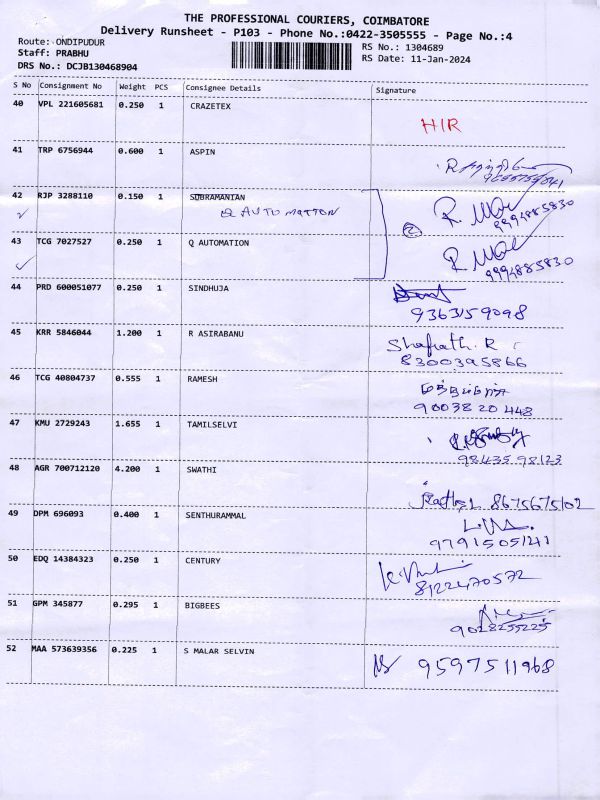 THE PROFESSIONAL COURIERS, COIMBATORE
Delivery Runsheet - P103 - Phone No.:0422-3505555 - Page No.:4
Route: ONDIPUDUR
RS No.: 1304689
Staff: PRABHU
RS Date: 11-Jan-2024
DRS No.: DCJB130468904
S No Consignment No Weight PCS Consignee Details Signature
40 VPL 221605681 0.250 1 CRAZETEX
HIR
41 TRP 6756944 0.600 1 ASPIN
42 RJP 3288110 0.150 1 SUBRAMANIAN
Q AUTOMATION
9994885830
43 TCG 7027527 0.250 1 Q AUTOMATION
9994885830
44 PRD 600051077 0.250 1 SINDHUJA
9363159098
45 KRR 5846044 1.200 1 R ASIRABANU
Shafrath. R
8300395866
46 TCG 40804737 0.555 1 RAMESH
9003820448
47 KMU 2729243 1.655 1 TAMILSELVI
9843598123
48 AGR 700712120 4.200 1 SWATHI
8675675102
49 DPM 696093 0.400 1 SENTHURAMMAL
9791505141
50 EDQ 14384323 0.250 1 CENTURY
8122470572
51 GPM 345877 0.295 1 BIGBEES
9028255225
52 MAA 573639356 0.225 1 S MALAR SELVIN
9597511968